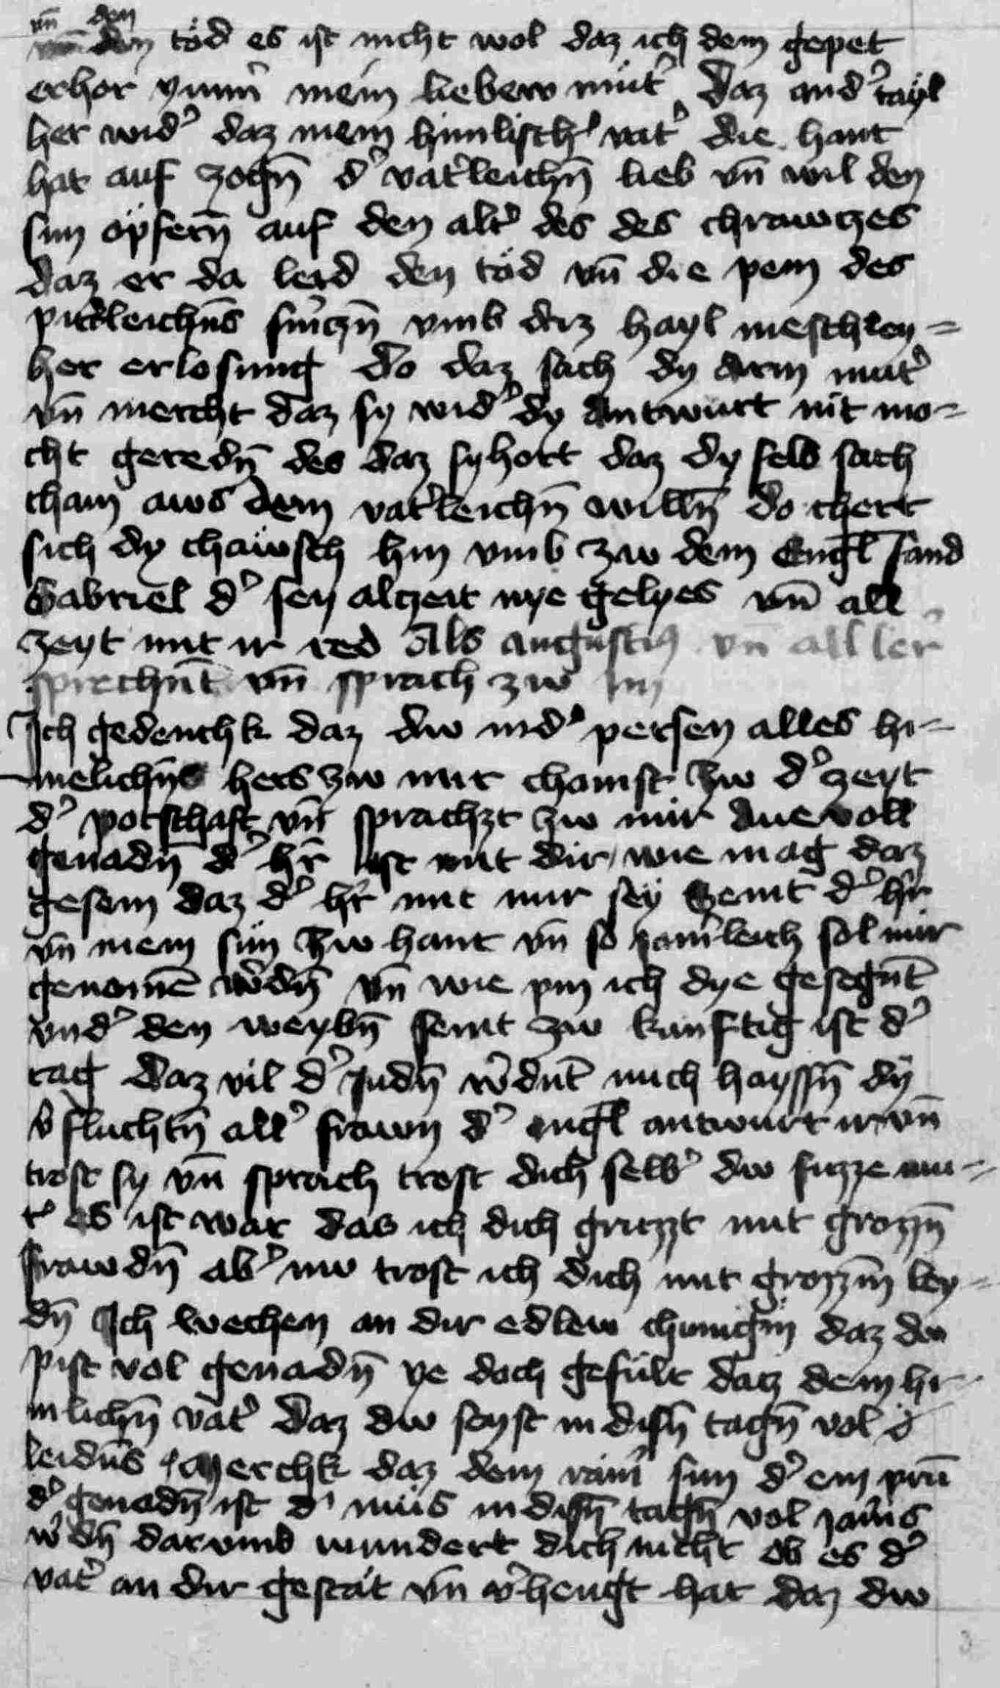 vn̄ den
vn̄ den töd es ist nicht wol daz ich dem gepet
erhör ynnn̄ mein liebew mut᾽ Daz and᾽ tayl
her wid᾽ daz mein himlisch᾽ vat᾽ die hant
hat auf zogn̄ d᾽ vat᾽leichn̄ lieb vn̄ wil den
sun opfern̄ auf den alt᾽ des des chrawczes
daz er da leid den töd vn̄ die pein des
pitt᾽leichn̄s smerczn̄ vmb daz hayl meschley=
her erlosung do daz sach dy arm mut᾽
vn̄ mercht daz sy wid᾽ dy antwurt nit mo=
cht geredn̄ des daz sy hort daz dy selb sach
cham aws dem vat᾽leichn̄ willn̄ do chert
sich dy chäwsch hin vmb zw dem Engl sand
Gabriel d᾽ sey alczeit nye gelyes vn̄ all
zeyt mit ir red Als augustin᾽ vn̄ all ler᾽
sprechnt vn̄ sprach zw im
Ich gedenchk daz dw in d᾽ persen alles hi=
melichn̄s hers zw mir chamst zw d᾽ zeyt
d᾽ potschaft vn̄ sprachzt zw mir aue voll
genadn̄ d᾽ hr̄ ist mit dir wie mag daz
gesein daz d᾽ hr̄ mit mir sey Seint d᾽ hr̄
vn̄ mein sün zw hant vn̄ so jam᾽leich sol mir
genomē w᾽dn̄ vn̄ wie pin ich dye gesegn̄t
vnd᾽ den weybn̄ seint zw kunftig ist d᾽
tag daz vil d᾽ Judn̄ w᾽dnt mich hayssn̄ dy
v᾽fluchtn̄ all᾽ frawn d᾽ engl antwurt ir vn̄
trost sy vn̄ sprach trost dich selb᾽ dw suzze mu=
t᾽ es ist war das ich dich gruzzt mit grozzn̄
frawdn̄ ab᾽ nw trost ich dich mit grozzm̄ ley=
dn̄ Ich wechen an dir edlew chunigin daz dw
pist vol genadn̄ ye doch gefült daz dem hi=
mlichn̄ vat᾽ daz dw seyst in disn̄ tagn̄ vol d᾽
leidn̄s Merchk daz dem rain᾽ sun d᾽ ein prun̄
d᾽ genadn̄ ist d᾽ müs in disn̄ tagn̄ vol jam᾽s
w᾽dn̄ darvmb wundert dich nicht ob es d᾽
vat᾽ an dir gestat vn̄ v᾽hengt hat daz dw